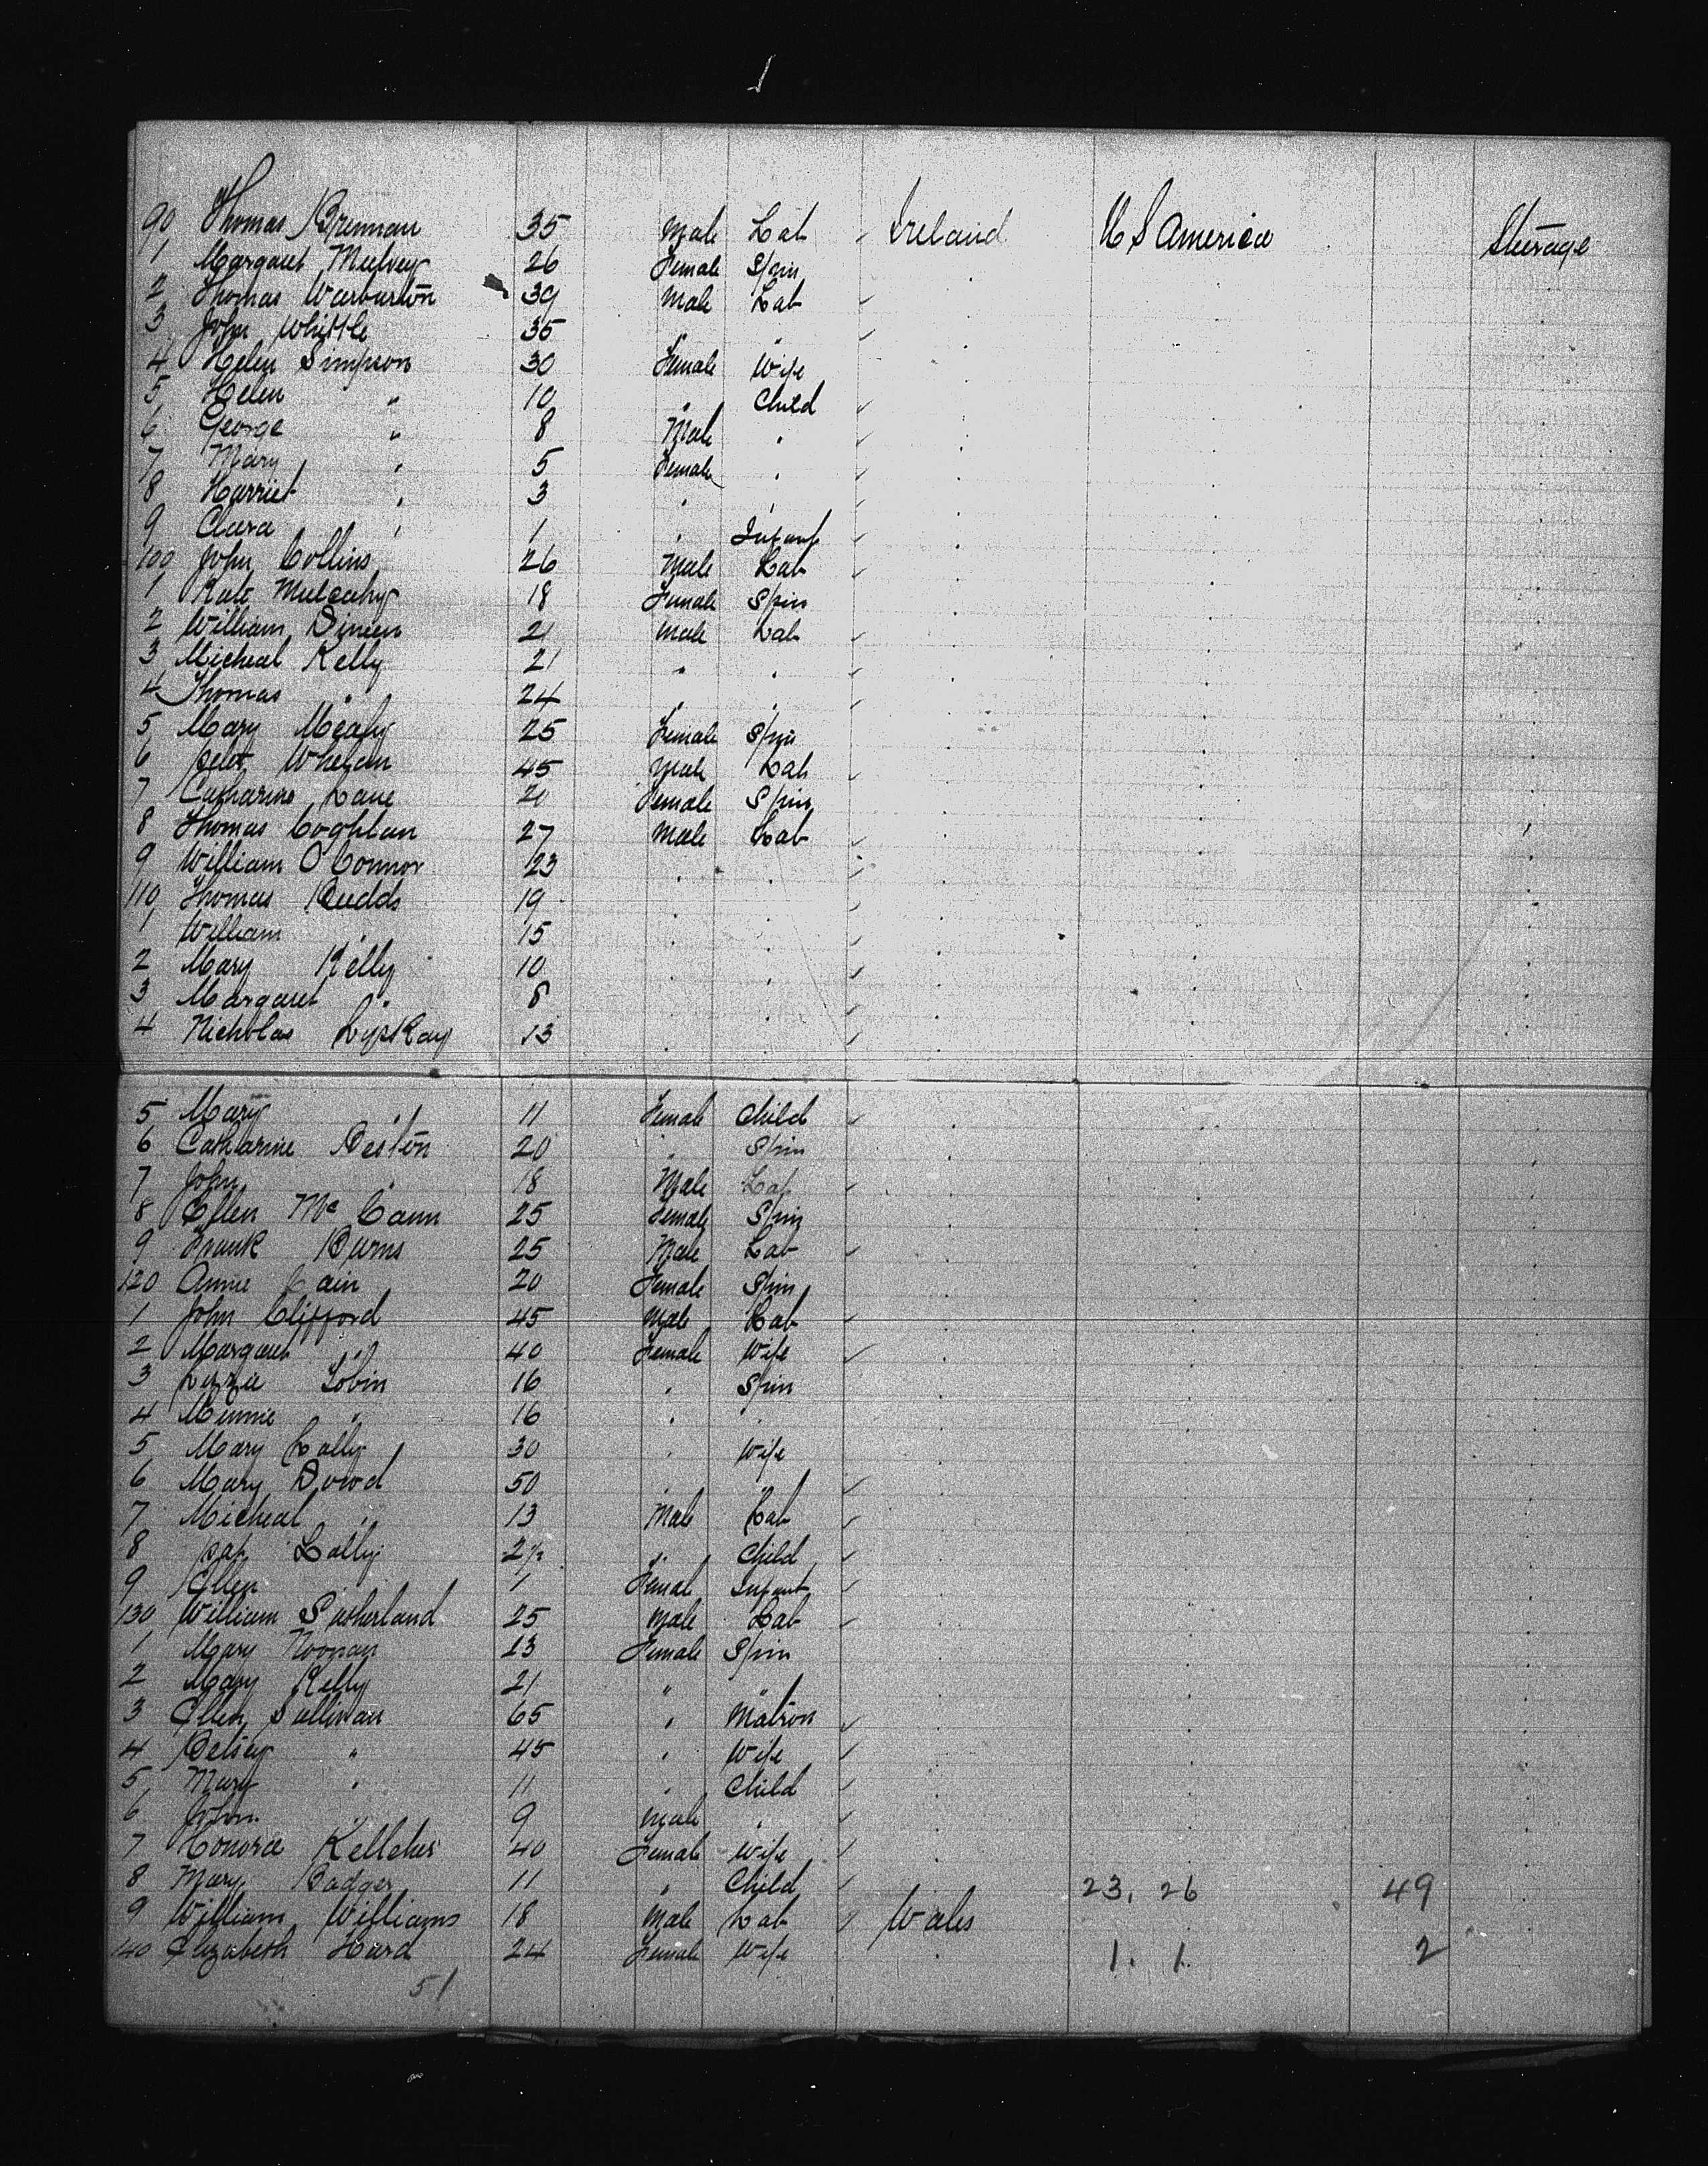 90 Thomas Brennan 35 Male Lab Ireland U S America Steerage
1 Margaret Mulvey 26 Female Spin
2 Thomas Warburton 39 Male Lab
3 John Whittle 35 " "
4 Helen Simpson 30 Female Wife
5 Helen " 10 " Child
6 George " 8 Male "
7 Mary " 5 Female "
8 Harriet " 3 " "
9 Clara " 1 " Infant
100 John Collins 26 Male Lab
1 Kate Mulcahy 18 Female Spin
2 William Dineen 21 Male Lab
3 Micheal Kelly 21 " "
4 Thomas " 24 " "
5 Mary Mealy 25 Female Spin
6 Peter Whelan 45 Male Lab
7 Catharine Lane 20 Female Spin
8 Thomas Coghlan 27 Male Lab
9 William O'Connor 23 " "
110 Thomas Rudds 19 " "
1 William " 15 " "
2 Mary Kelly 10 " "
3 Margaret " 8 " "
4 Nicholas 13 " "
5 Mary " 11 Female Child
6 Catharine Beston 20 " Spin
7 John " 18 Male Lab
8 Ellen Mc Cann 25 Female Spin
9 Frank Burns 25 Male Lab
120 Annie Cain 20 Female Spin
1 John Clifford 45 Male Lab
2 Margaret " 40 Female Wife
3 Lizzie Tobin 16 " Spin
4 Minnie " 16 " "
5 Mary Lally 30 " Wife
6 Mary Dowd 50 " "
7 Micheal " 13 Male Lab
8 Pat Lally 2½ " Child
9 Ellen " 1 Femal Infant
130 William Sutherland 25 Male Lab
1 Mary Noonan 23 Female Spin
2 Mary Kelly 21 " "
3 Ellen Sullivan 65 " Matron
4 Betsey " 45 " Wife
5 Mary " 11 " Child
6 John " 9 Male "
7 Honora Kelleher 40 Female Wife
8 Mary Badger 11 " Child 23. 26 49
9 William Williams 18 Male Lab Wales
140 Elizabeth Hard 24 Female Wife " 1. 1. 2
51